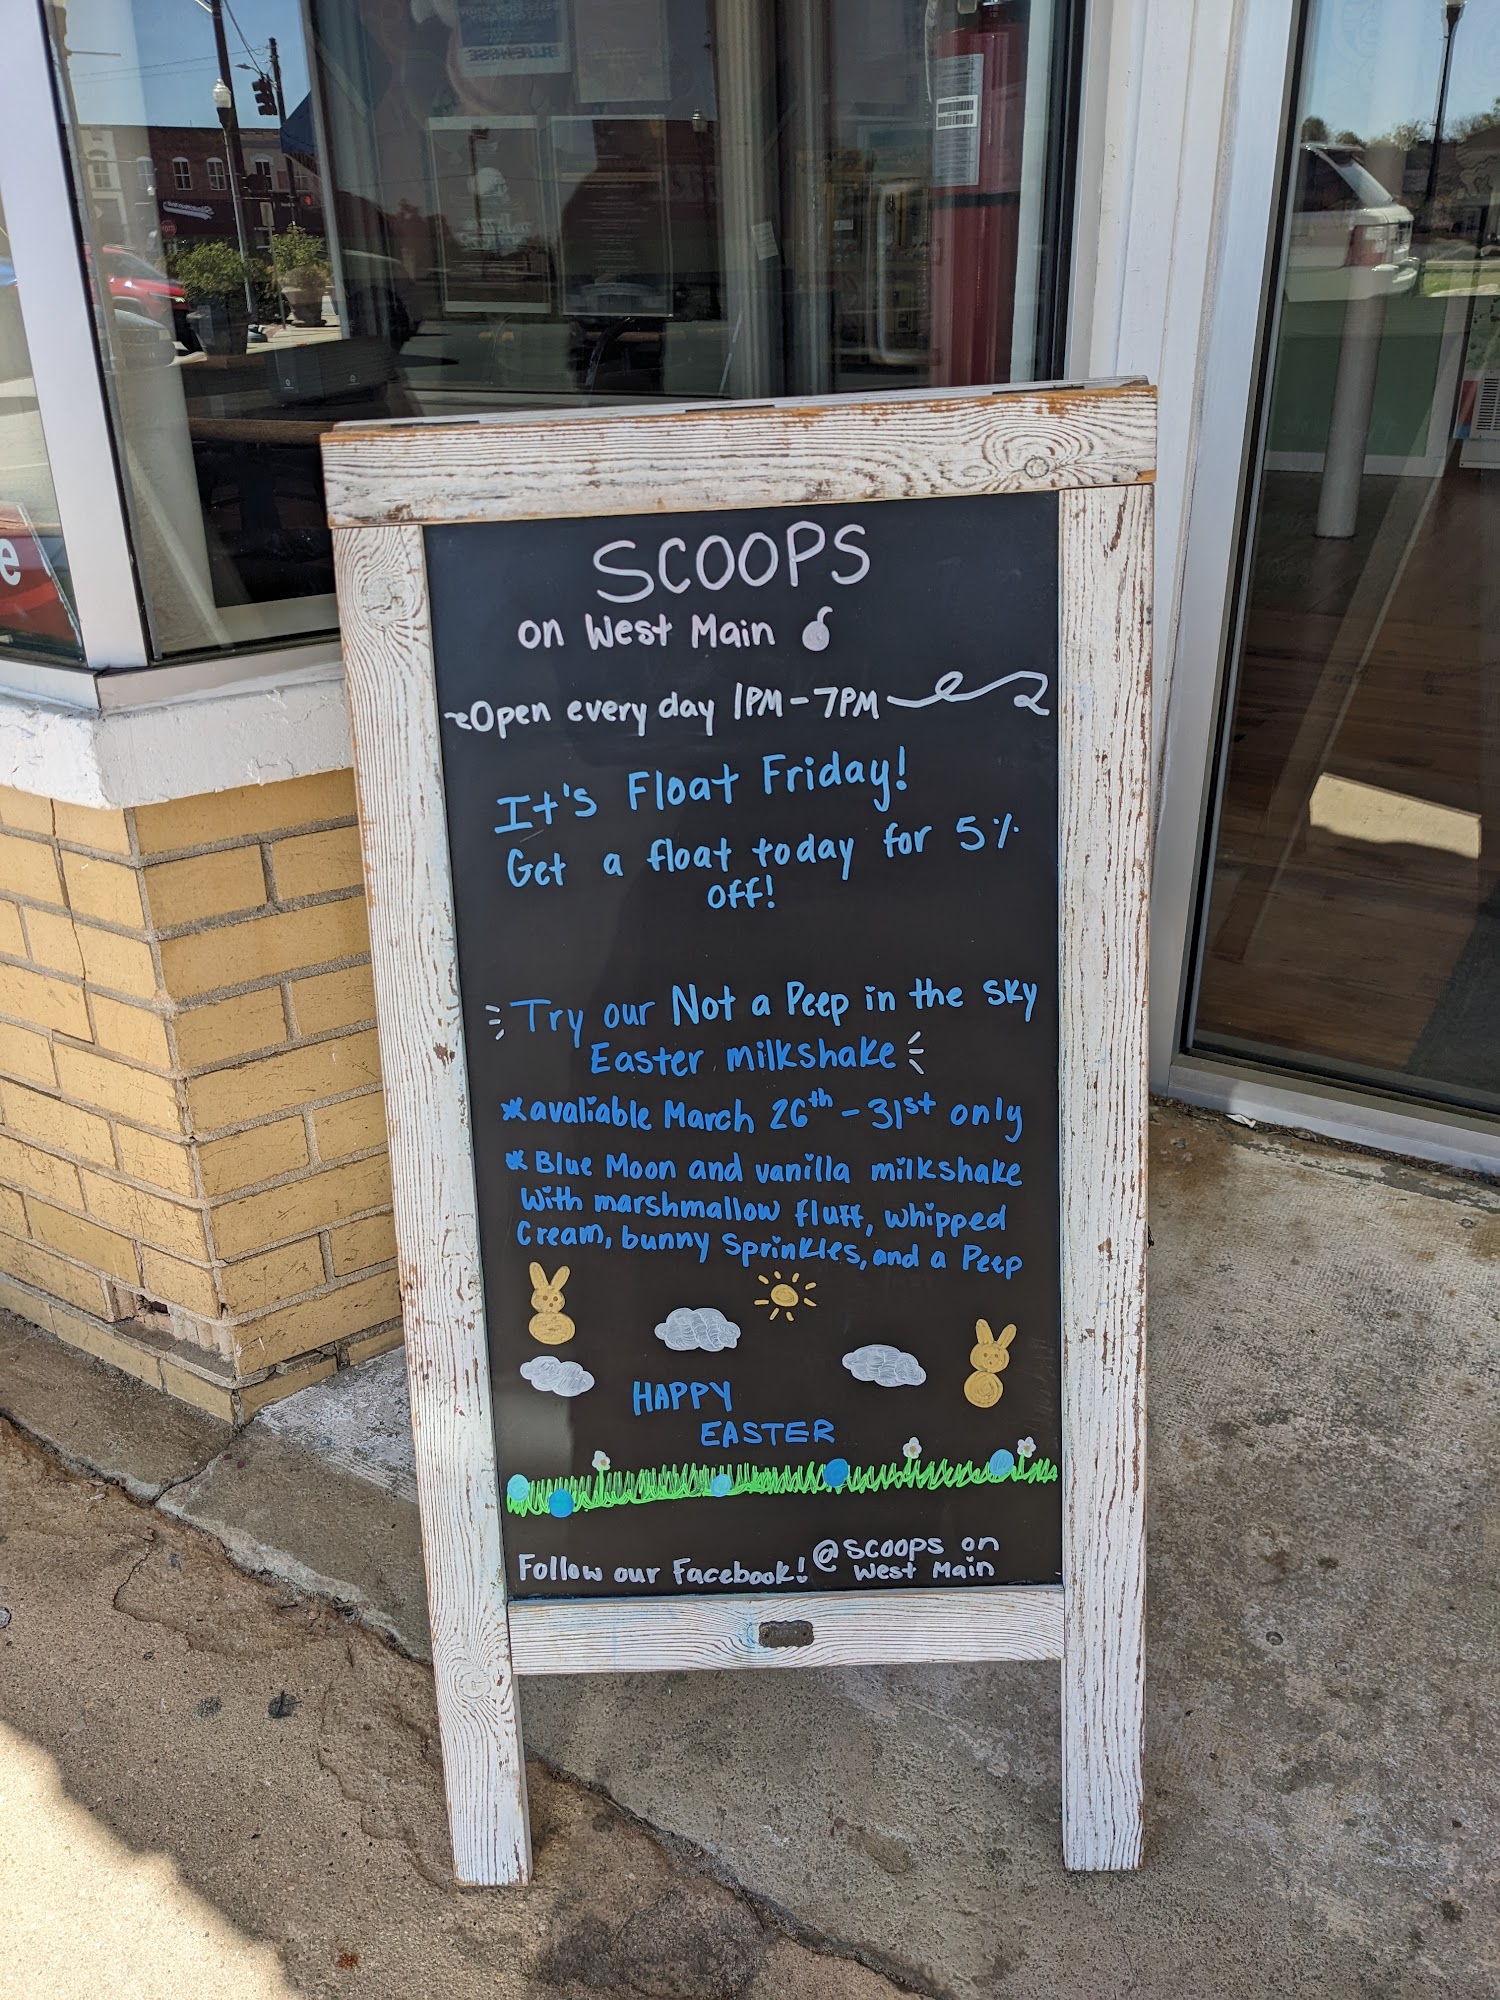 SCOOPS
on West Main
Open every day 1PM-7PM
It's Float Friday!
Get a float today for 5%
off!
Try our Not a Peep in the sky
Easter milkshake
*avaliable March 26th-31st only
* Blue Moon and vanilla milkshake
with marshmallow fluff, whipped
cream, bunny sprinkles, and a Peep
HAPPY
EASTER
Follow our Facebook! @scoops on
West Main